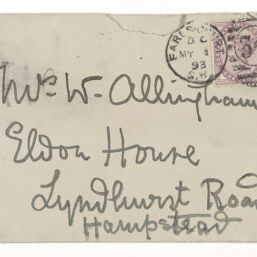 EARLS COURT
D.C
MY 1
93
S.W.
Mrs W. Allingham
Eldon House
Lyndhurst Road
Hampstead